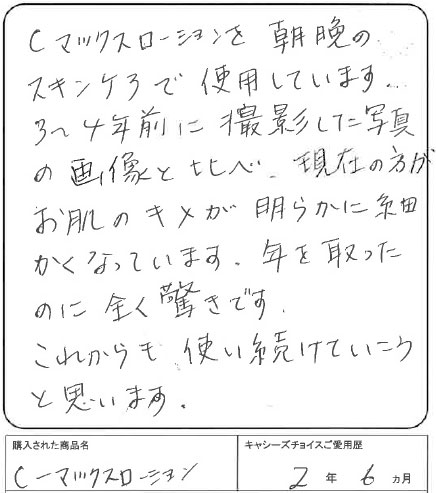 Cマックスローションを 朝晩の
スキンケアで 使用しています.
3〜4年前に 撮影した写真
の画像と比べ、現在の方が
お肌のキメが 明らかに細
かくなっています。年を取った
のに 全く驚きです.
これからも 使い続けていこう
と思います.
購入された商品名 キャシーズチョイスご愛用歴
C-マックスローション 2 年 6 ヵ月